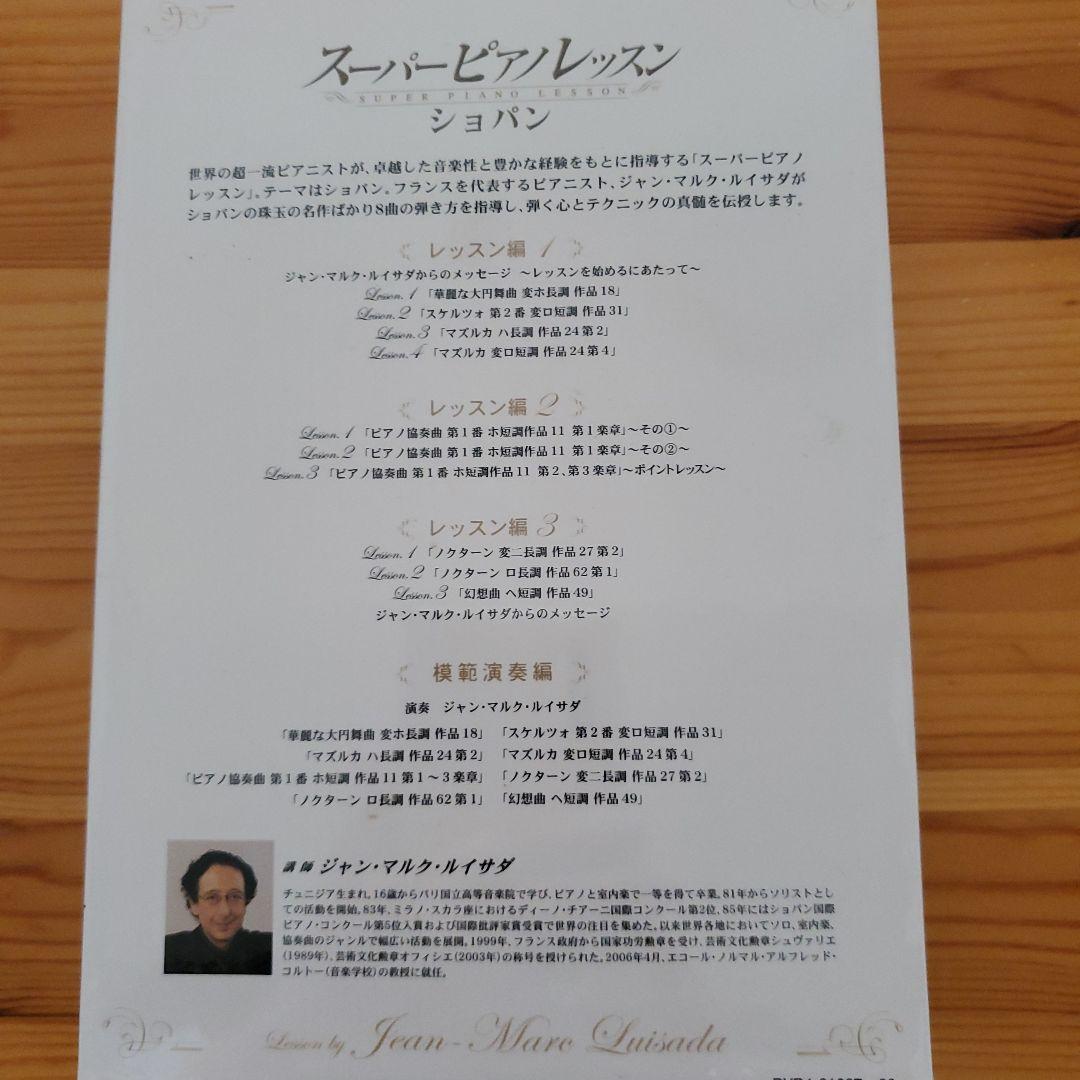 スーパーピアノレッスン
SUPER PIANO LESSON
ショパン
世界の超一流ピアニストが、卓越した音楽性と豊かな経験をもとに指導する「スーパーピアノ
レッスン」。テーマはショパン。フランスを代表するピアニスト、ジャン・マルク・ルイサダが
ショパンの珠玉の名作ばかり8曲の弾き方を指導し、弾く心とテクニックの真髄を伝授します。
レッスン編 1
ジャン・マルク・ルイサダからのメッセージ ～レッスンを始めるにあたって～
Lesson.1 「華麗な大円舞曲 変ホ長調 作品18」
Lesson.2 「スケルツォ 第2番 変ロ短調 作品31」
Lesson.3 「マズルカ ハ長調 作品24第2」
Lesson.4 「マズルカ 変ロ短調 作品24第4」
レッスン編 2
Lesson.1 「ピアノ協奏曲 第1番 ホ短調作品11 第1楽章」～その①～
Lesson.2 「ピアノ協奏曲 第1番 ホ短調作品11 第1楽章」～その②～
Lesson.3 「ピアノ協奏曲 第1番 ホ短調作品11 第2、第3楽章」～ポイントレッスン～
レッスン編 3
Lesson.1 「ノクターン 変ニ長調 作品27第2」
Lesson.2 「ノクターン ロ長調 作品62第1」
Lesson.3 「幻想曲 ヘ短調 作品49」
ジャン・マルク・ルイサダからのメッセージ
模範演奏編
演奏 ジャン・マルク・ルイサダ
「華麗な大円舞曲 変ホ長調 作品18」 「スケルツォ 第2番 変ロ短調 作品31」
「マズルカ ハ長調 作品24第2」 「マズルカ 変ロ短調 作品24第4」
「ピアノ協奏曲 第1番 ホ短調 作品11 第1～3楽章」 「ノクターン 変ニ長調 作品27第2」
「ノクターン ロ長調 作品62第1」 「幻想曲 ヘ短調 作品49」
講師 ジャン・マルク・ルイサダ
チュニジア生まれ。16歳からパリ国立高等音楽院で学び、ピアノと室内楽で一等を得て卒業。81年からソリストとし
ての活動を開始。83年、ミラノ・スカラ座におけるディーノ・チアーニ国際コンクール第2位、85年にはショパン国際
ピアノ・コンクール第5位入賞および国際批評家賞受賞で世界の注目を集めた。以来世界各地においてソロ、室内楽、
協奏曲のジャンルで幅広い活動を展開。1999年、フランス政府から国家功労勲章を受け、芸術文化勲章シュヴァリエ
(1989年)、芸術文化勲章オフィシエ(2003年)の称号を授けられた。2006年4月、エコール・ノルマル・アルフレッド・
コルトー(音楽学校)の教授に就任。
Lesson by Jean-Marc Luisada